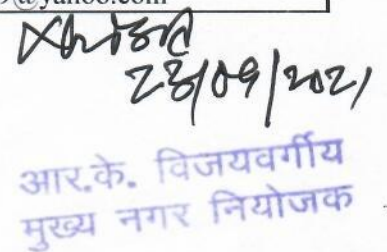 9@yahoo.com
23/09/2021
आर.के. विजयवर्गीय
मुख्य नगर नियोजक